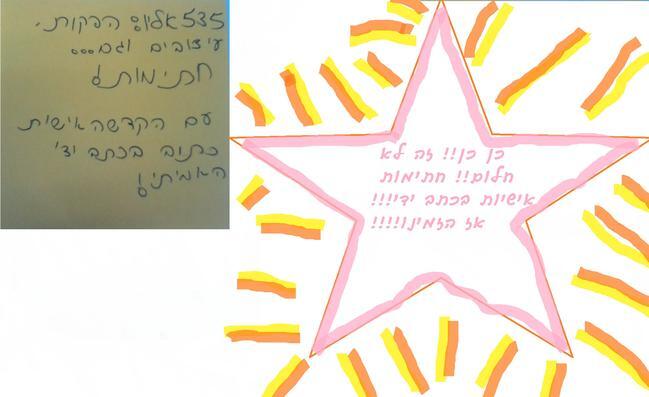 535אליס! הפקות.
עיצובים וגם...
חתימות!
עם הקדשה אישית
כתוב בכתב ידי
האמיתי!
כן כן!! זה לא
חלום!! חתימות
אישיות בכתב ידי!!!
אז הזמינו!!!!!